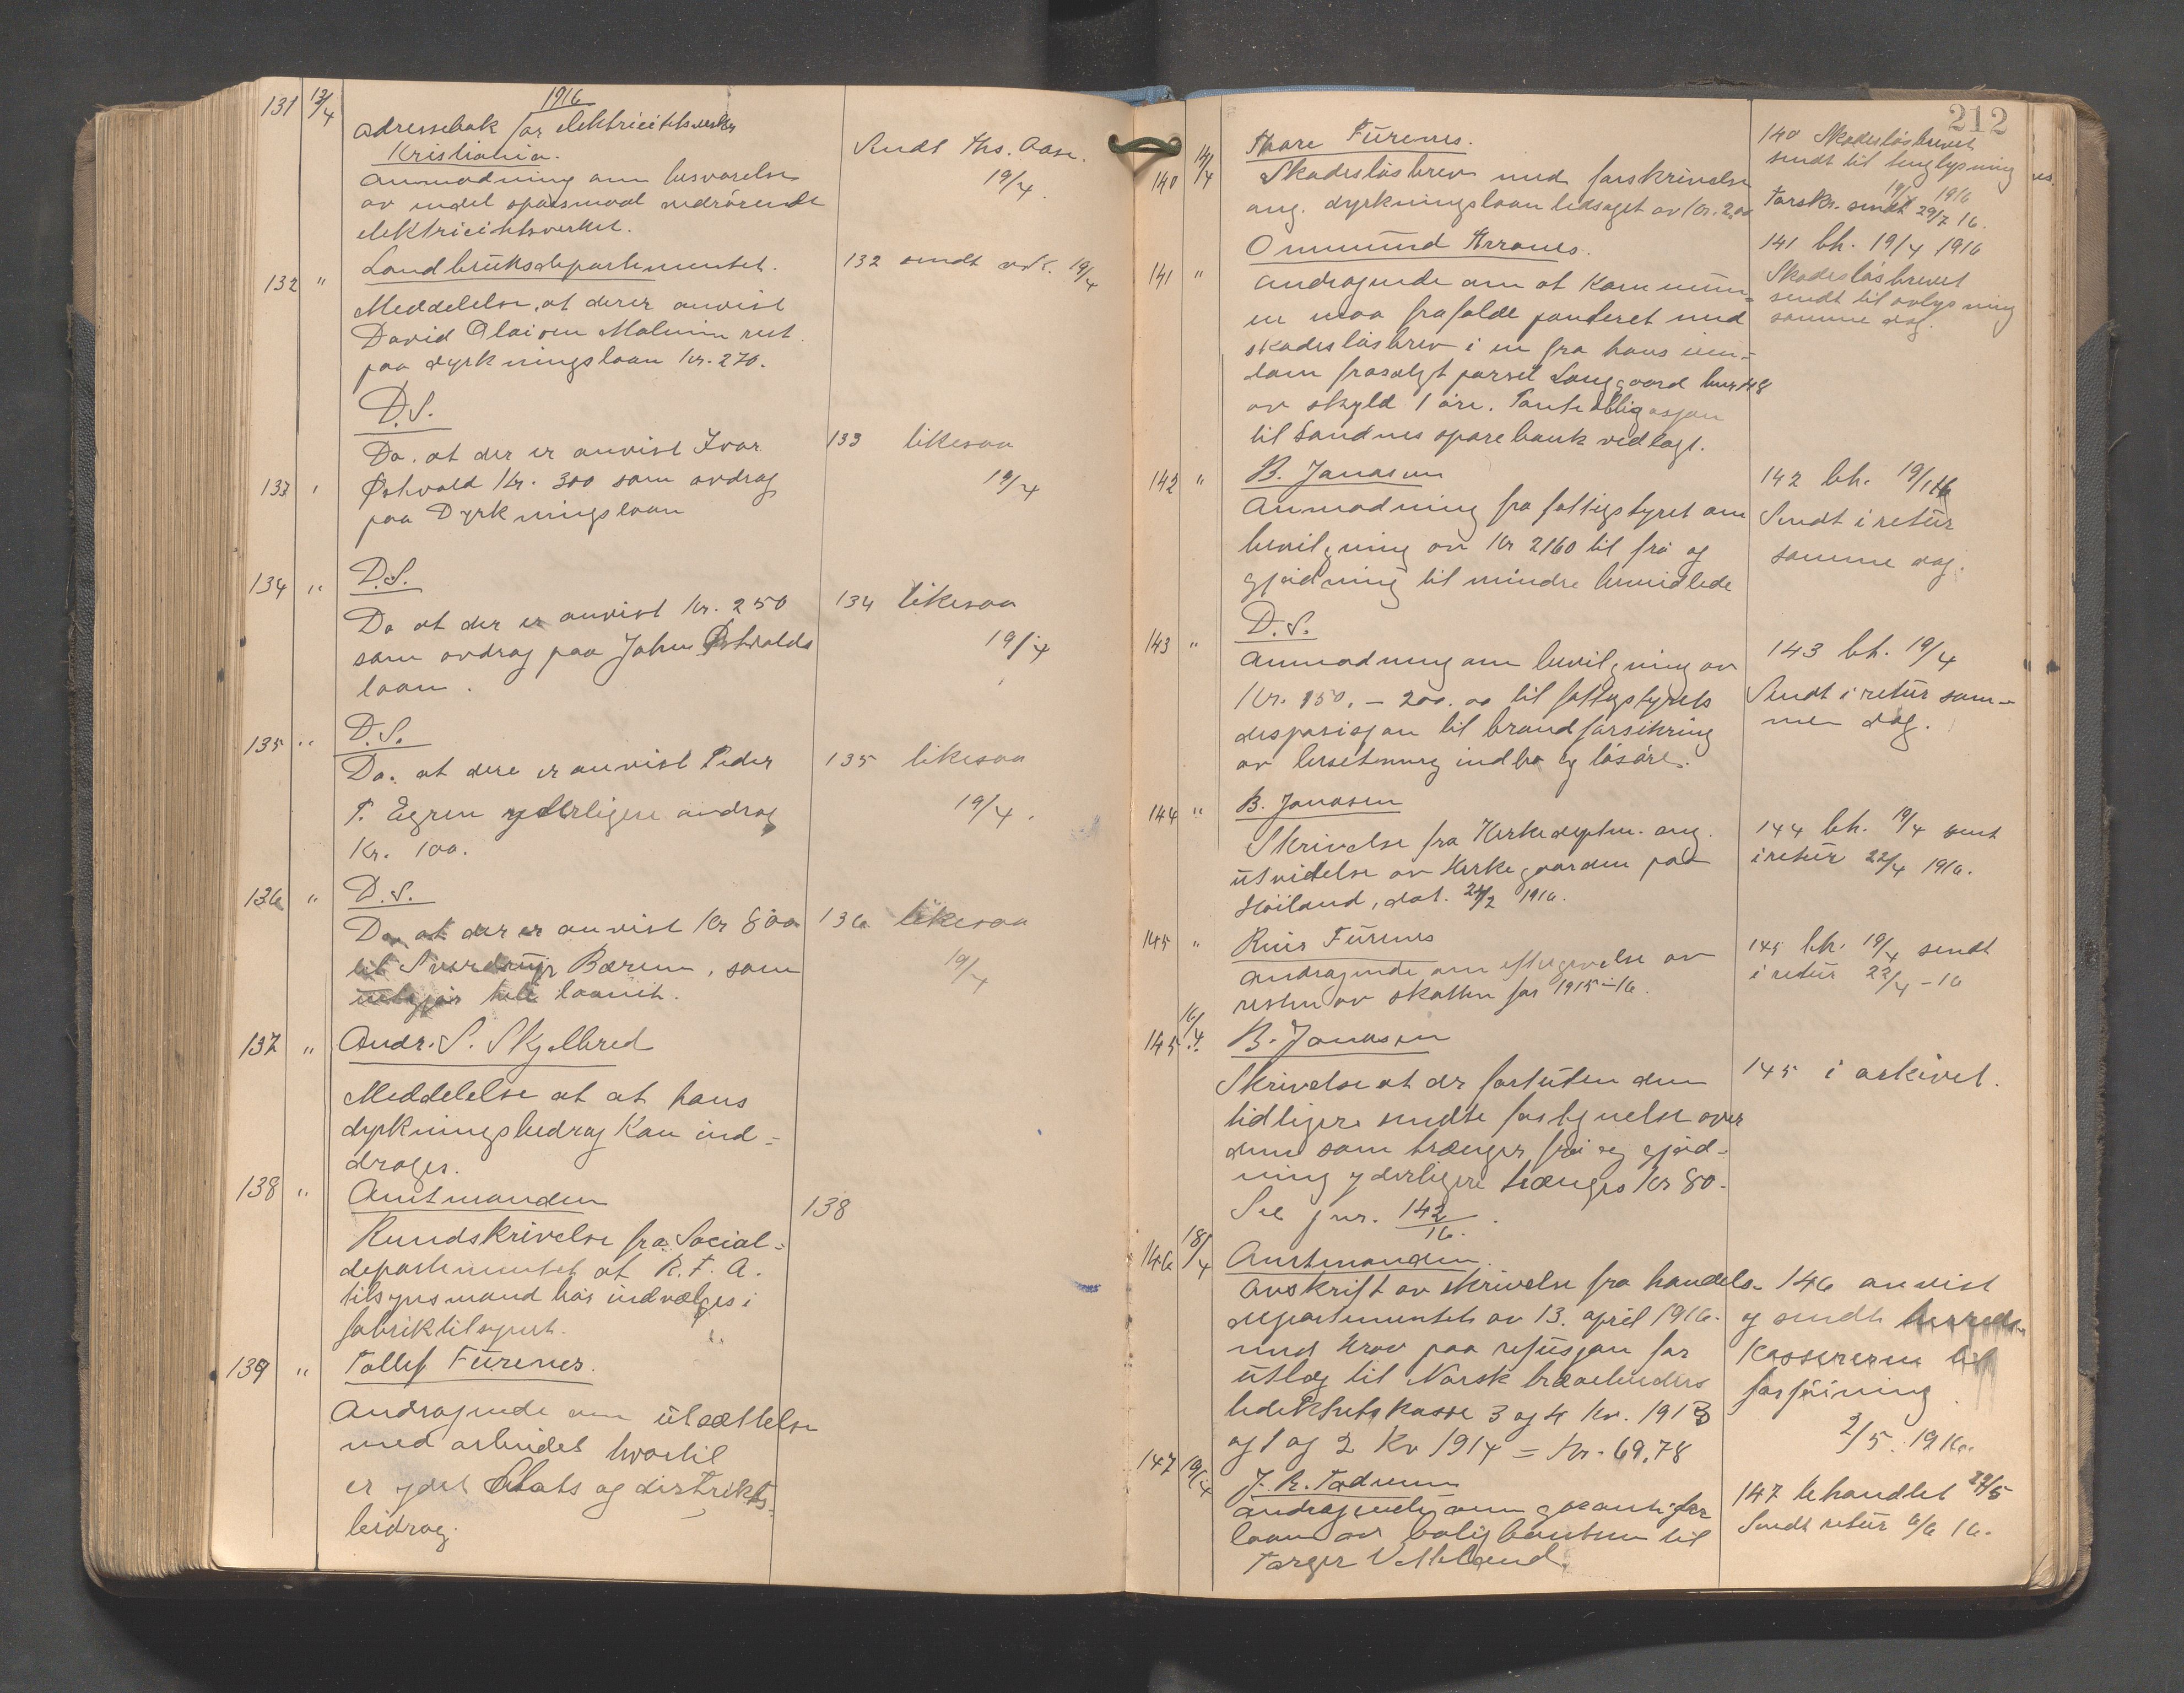 1916
131 13/4 Adressebok for elektricitetsverker
Kristiania.
Anmodning om besvarelse
av endel spørsmaal vedrørende
elektricitetsverket.
Sendt Ths. Aase.
19/4
132 " Landbruksdepartementet.
Meddelelse, at der er anvist
David Olaisen Malmin rest
paa dyrkningslaan kr. 270.
132 sendt 19/4
D.S.
133 " Do. at der er anvist Ivar
Østvold Kr. 300 som avdrag
paa Dyrkningslaan
133 likesaa
19/4
134 " D.S.
Do at der er anvist Kr. 250
som avdrag paa John Østvolds
laan.
134 likesaa
19/4
135 " D.S.
Do. at dere er anvist Peder
T. Egren yderligere avdrag
Kr. 100.
135 likesaa
19/4.
136 " D.S.
Do at der er anvist Kr 800
til Sverdrup Bærem, som
utgjør hele laanet.
136 likesaa
19/4
137 " Andr. S. Skjelbred
Meddelelse at at hans
dyrkningsbedrag kan ind-
drages.
138 " Amtmanden
Rundskrivelse fra Social-
departementet at R.F.A.
tilsynsmand bør indvælges i
fabriktilsynet.
138
139 " Tollef Fürenes.
Andragende om utsættelse
med arbeidet hvortil
er ydet Stats og distrikts-
bidrag.
212
140 14/4 Thore Fürenes.
Skadesløsbrev med forskrivelse
ang. dyrkningslaan ledsaget av kr. 2,00
140 Skadesløsbrevet
sendt til tinglysning
19/4 1916
Forskr. sendt 29/7 16.
141 " Ommund Hrones.
Andragende om at kommün-
en maa frafalde panteret med
skadesløsbrev i en fra hans eien-
dom frasolgt parsel Langgaard bnr 48
av skyld 1 øre. Panteobligasjon
til Sandnes sparebank vedlagt.
141 bh. 19/4 1916
Skadesløsbrevet
sendt til avlysning
samme dag.
142 " B. Jonasen
Anmodning fra fattigstyret om
bevilgning av Kr 2160 til frø og
gjødning til mindre bemidlede
142 bh. 19/4 16
Sendt i retür
samme dag.
D.S.
143 " Anmodning om bevilgning av
Kr. 150.- 200.00 til fattigstyrets
desposisjon til brandforsikring
av besetning indbo og løsøre.
143 bh. 19/4
Sendt i retür sam-
men dag.
144 " B. Jonasen
Skrivelse fra Kirkedeptm. ang.
ütvidelse av Kirkegaarden paa
Høiland, dat. 24/2 1916.
144 bh. 19/4 sent
i retür 22/4 1916.
145 " Fürenes
Andragende om eftergivelse av
resten av skatten for 1915-16.
145 bh. 19/4 sendt
i retür 22/4 -16
145 16/4 B. Jonasen
Skrivelse at der foruten den
tidligere sendte fortegnelse over
dem som trænger frø og gjød-
ning yderligere trænges Kr 80.-
See jnr. 142/16.
145 i arkivet.
146 18/4 Amtmanden.
Avskrift av skrivelse fra handels-
departementet av 13. april 1916.
med krav paa refusjon for
ütlæg til Norsk træarbeiders
ledekthetskasse 3 og 4 Kv. 1913
og 1 og 2 Kv 1914 = Kr. 69.78
146 anvist
og sendt herreds
Kassereren til
forføining
2/5. 1916.
147 19/4 J. R. Todnem
Andragende om garanti for
laan av boligbanken til
Torger Vetteland.
147 behandlet 22/5
Sendt retür 6/6 16.